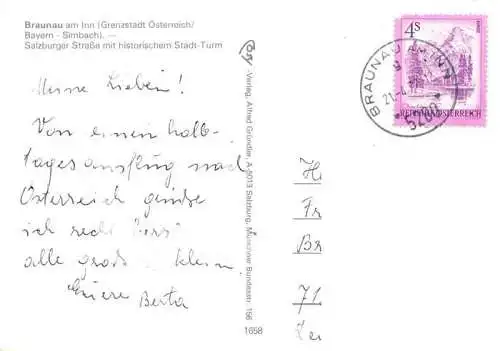 Braunau am Inn (Grenzstadt Österreich/
Bayern - Simbach). —
Salzburger Straße mit historischem Stadt-Turm
Meine Lieben!
Von einen halb-
tagesausflug nach
Österreich grüße
ich recht herz
alle groß u. klein.
Eure Berta
Verlag Alfred Gründler, A-5013 Salzburg, Münchner Bundesstr. 156
1658
4S
REPUBLIK ÖSTERREICH
BRAUNAU AM INN
5280
H
Fr
Br
71